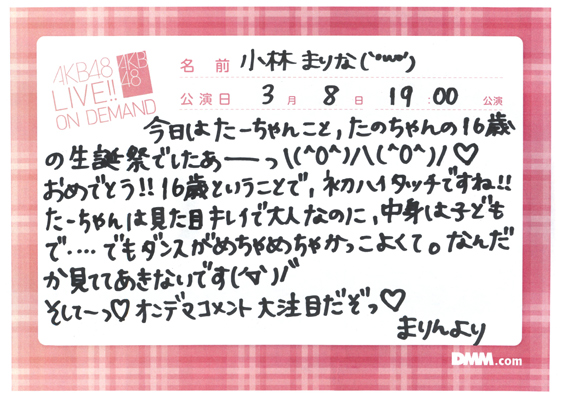 AKB48
LIVE!!
ON DEMAND
AKB
48
名 前 小林 まりな(*´ω`*)
公演日 3 月 8 日 19:00 公演
今日はたーちゃんこと,たのちゃんの16歳
の生誕祭でしたあーーっ\(^O^)/\(^O^)/♡
おめでとう!!16歳ということで,初ハイタッチですね!!
たーちゃんは見た目キレイで大人なのに,中身は子ども
で‥‥でもダンスがめちゃめちゃかっこよくて。なんだ
か見ててあきないです(^∇^)/
そしてーっ♡オンデマコメント大注目だぞっ♡
まりんより
DMM.com